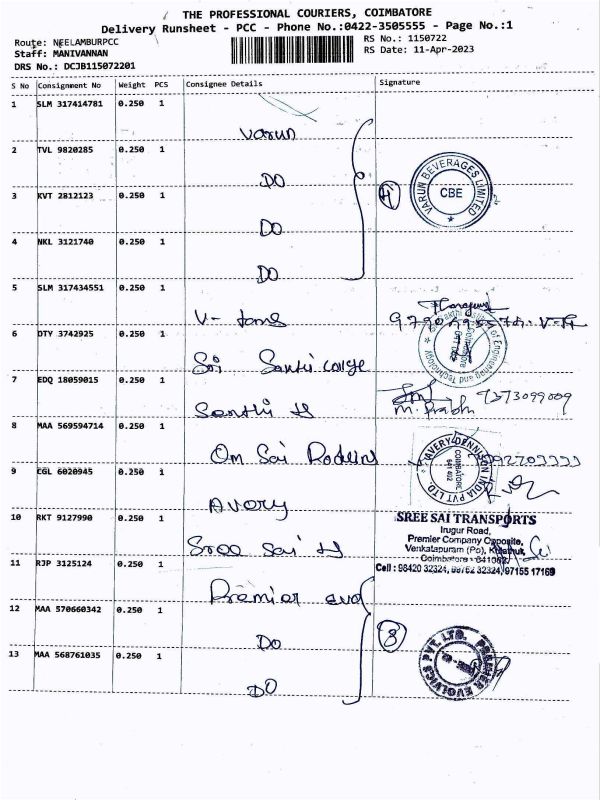 THE PROFESSIONAL COURIERS, COIMBATORE
Delivery Runsheet - PCC - Phone No.:0422-3505555 - Page No.:1
Route: NEELAMBURPCC RS No.: 1150722
Staff: MANIVANNAN RS Date: 11-Apr-2023
DRS No.: DCJB115072201
S No Consignment No Weight PCS Consignee Details Signature
1 SLM 317414781 0.250 1
Varun
2 TVL 9820285 0.250 1
DO
3 KVT 2812123 0.250 1
DO
4 NKL 3121740 0.250 1
DO
4
VARUN BEVERAGES LIMITED
CBE
5 SLM 317434551 0.250 1
V-
6 DTY 3742925 0.250 1
Sri Santhi
of Engineering and Technology
Coimbatore
7 EDQ 18059015 0.250 1
Santhi
M. Prabhu 7373099009
8 MAA 569594714 0.250 1
Om Sai
9 EGL 6020945 0.250 1
Avory
AVERY DENNISON INDIA PVT LTD.
COIMBATORE
641 402
10 RKT 9127990 0.250 1
Sree Sai
SREE SAI TRANSPORTS
Irugur Road,
Premier Company Opposite,
Venkatapuram (Po),
Coimbatore
Cell : 98420 32324, 99762 32324, 97155 17169
11 RJP 3125124 0.250 1
Premier evo
12 MAA 570660342 0.250 1
DO
13 MAA 568761035 0.250 1
DO
3
PREMIER EVOLVICS PVT. LTD.